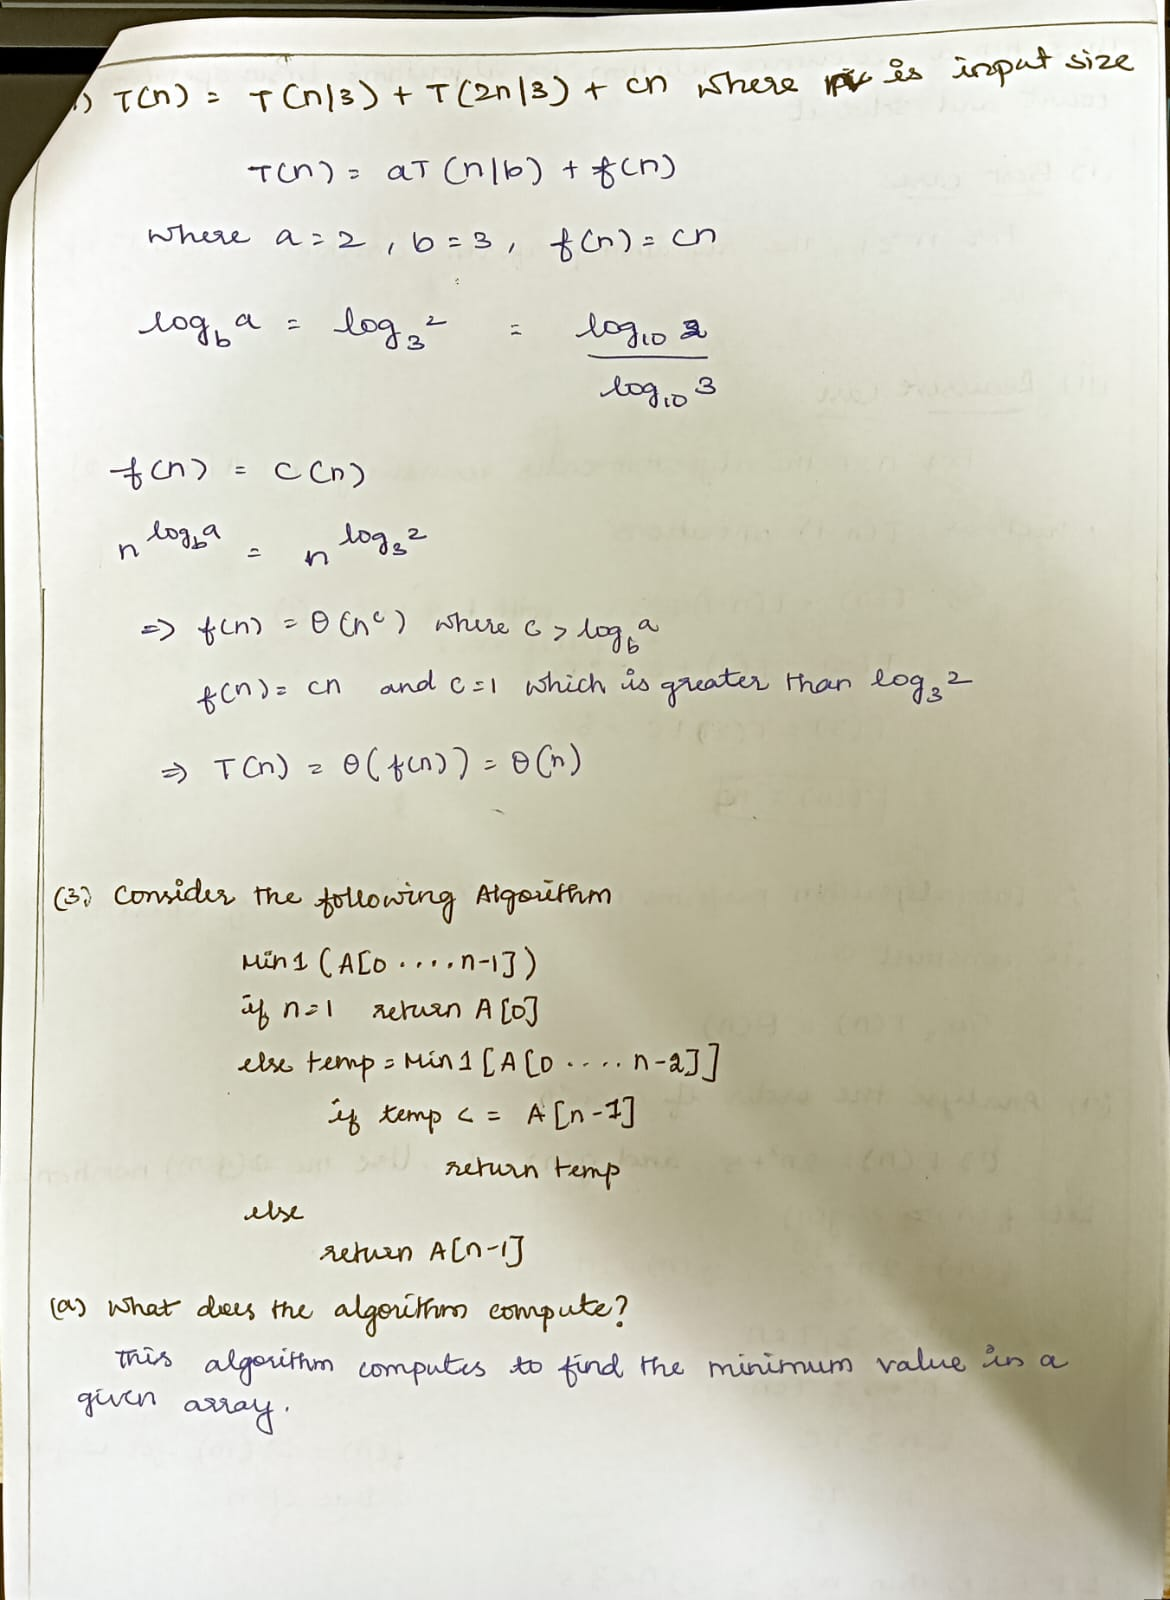 ) T(n) = T(n/3) + T(2n/3) + cn where is input size
T(n) = aT(n/b) + f(n)
where a = 2, b = 3, f(n) = cn
log_b a = log_3 2 = log_10 2 / log_10 3
f(n) = C(n)
n^log_b a = n^log_3 2
=> f(n) = θ(n^c) where c > log_b a
f(n) = cn and c = 1 which is greater than log_3 2
=> T(n) = θ(f(n)) = θ(n)
(3) Consider the following Algorithm
Min1 (A[0 .....n-1])
if n=1 return A[0]
else temp = Min1 [A[0 ..... n-2]]
if temp < = A[n-1]
return temp
else
return A[n-1]
(a) What does the algorithm compute?
This algorithm computes to find the minimum value in a
given array.